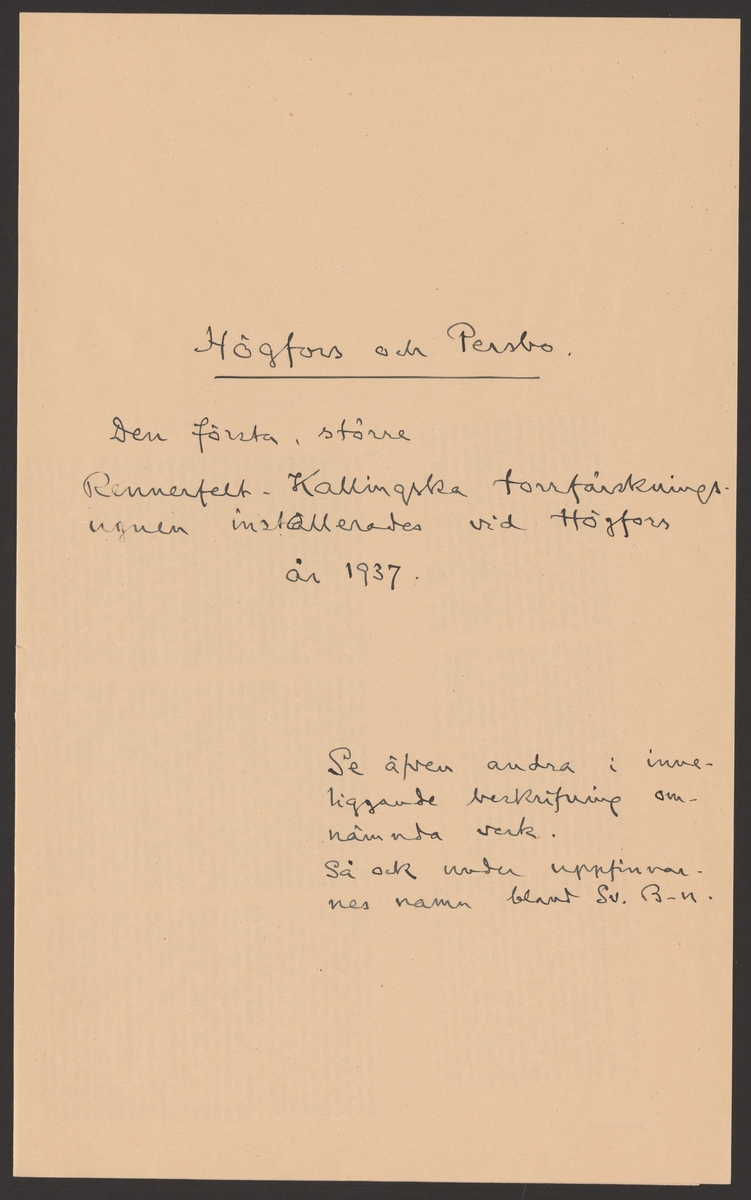 Högfors och Persbo.
Den första, större
Rennerfelt-Kallingska torrfärsknings-
ugnen installerades vid Högfors
år 1937.
Se äfven andra i inne-
liggande beskrifning om-
nämnda verk.
Så ock under uppfinnar-
nes namn bland Sv. B-n.